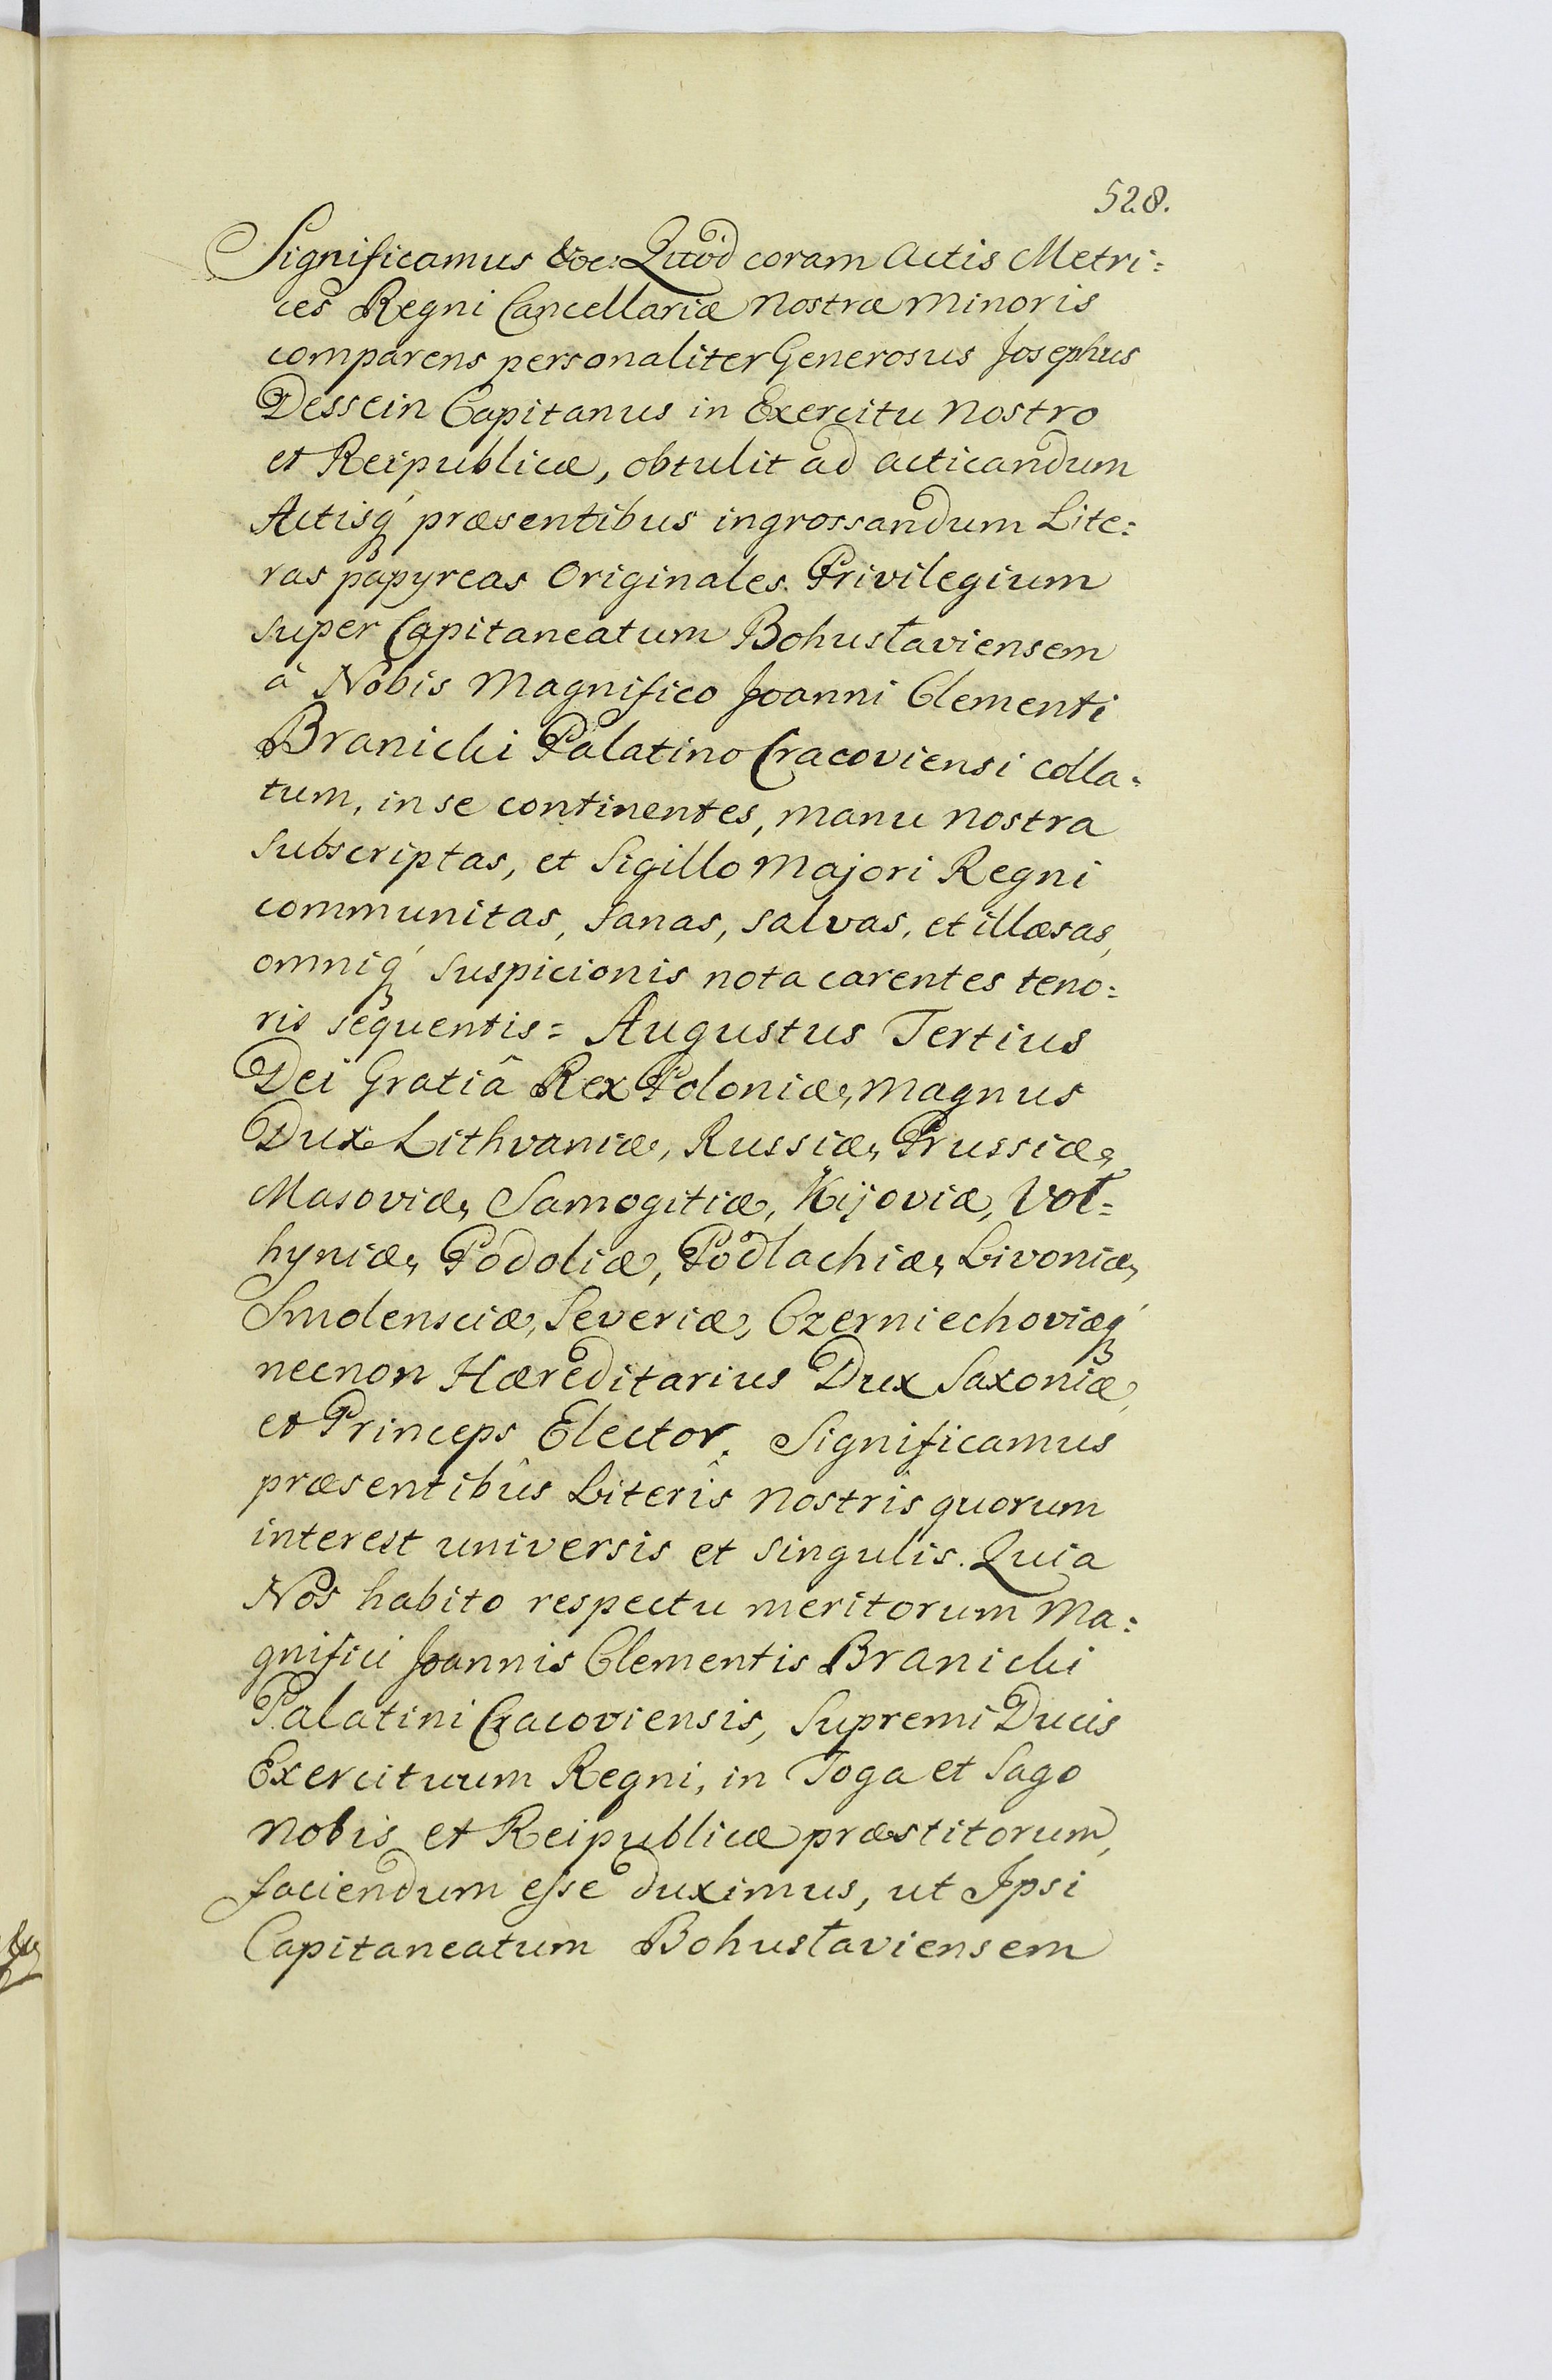 528.
Significamus &c: Quòd coram Actis Metri:
ces Regni Cancellariæ Nostræ Minoris
comparens personaliter Generosus Josephus
Dessein Capitanus in Exercitu Nostro
et Reipublicæ, obtulit ad acticandum
Actisq́ præsentibus ingrossandum Lite:
ras papyreas Originales Privilegium
super Capitaneatum Bohusłaviensem
à Nobis Magnifico Joanni Clementi
Branicki Palatino Cracoviensi colla:
tum, in se continentes, manu Nostra
subscriptas, et Sigillo Majori Regni
communitas, sanas, salvas, et illæsas,
omniq́ suspicionis nota carentes teno:
ris sequentis= Augustus Tertius
Dei Gratiâ Rex Poloniæ, Magnus
Dux Lithvaniæ, Russiæ, Prussiæ,
Masoviæ, Samogitiæ, Kijoviæ, Voł:
hyniæ, Podoliæ, Podlachiæ, Livoniæ,
Smolensciæ, Severiæ, Czerniechoviæq́
necnon Hæreditarius Dux Saxoniæ,
et Princeps Elector. Significamus
præsentibûs Literîs Nostrîs quorum
interest universis et singulis. Quia
Nos habito respectu meritorum Ma:
gnifici Joannis Clementis Branicki
Palatini Cracoviensis, Supremi Ducis
Exercituum Regni, in Toga et Sago
Nobis et Reipublicæ præstitorum,
faciendum esse duximus, ut Ipsi
Capitaneatum Bohusłaviensem